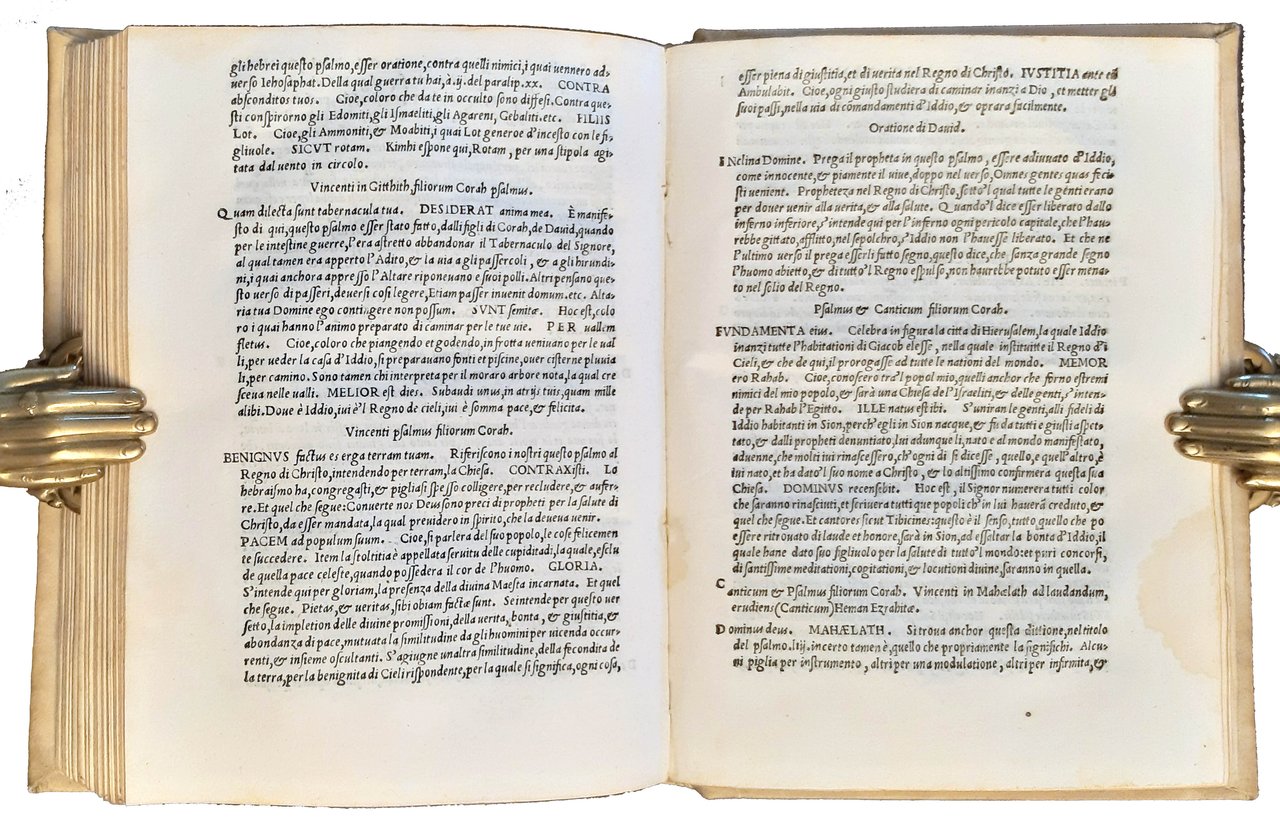 gli hebrei questo psalmo, esser oratione, contra quelli nimici, i quai uennero ad-
uerso Iehosaphat. Della qual guerra tu hai, à.ij. del paralip. xx. CONTRA
absconditos tuos. Cioe, coloro che da te in occulto sono diffesi. Contra que-
sti conspirorno gli Edomiti, gli Ismaeliti, gli Agareni, Gebaliti etc. FILIIS
Lot. Cioe, gli Ammoniti, & Moabiti, i quai Lot generoe d'incesto con le fi-
gliuole. SICVT rotam. Kimhi espone qui, Rotam, per una stipola agi-
tata dal uento in circolo.
Vincenti in Gitthith, filiorum Corah psalmus.
Quam dilecta sunt tabernacula tua. DESIDERAT anima mea. È manife-
sto di qui, questo psalmo esser stato fatto, dalli figli di Corah, de Dauid, quando
per le intestine guerre, l'era astretto abbandonar il Tabernaculo del Signore,
al qual tamen era apperto l'Adito, & la uia a gli passercoli, & a gli hirundi-
ni, i quai anchora appresso l'Altare riponeuano e suoi polli. Altri pensano que-
sto uerso di passeri, deuersi cosi legere, Etiam passer inuenit domum. etc. Alta-
ria tua Domine ego contingere non possum. SVNT semitæ. Hoc est, colo
ro i quai hanno l'animo preparato di caminar per le tue uie. PER uallem
fletus. Cioe, coloro che piangendo et godendo, in frotta ueniuano per le ual
li, per ueder la casa d'Iddio, si preparauano fonti et piscine, ouer cisterne pluuia
li, per camino. Sono tamen chi interpreta per il moraro arbore nota, la qual cre
sceua nelle ualli. MELIOR est dies. Subaudi unus, in atrijs tuis, quam mille
alibi. Doue è Iddio, iui è'l Regno de cieli, iui è somma pace, & felicita.
Vincenti psalmus filiorum Corah.
BENIGNVS factus es erga terram tuam. Riferiscono i nostri questo psalmo al
Regno di Christo, intendendo per terram, la Chiesa. CONTRAXisti. Lo
hebraismo ha, congregasti, & pigliasi spesso colligere, per recludere, & aufer-
re. Et quel che segue: Conuerte nos Deus sono preci di propheti per la salute di
Christo, da esser mandata, la qual preuidero in spirito, che la deueua uenir.
PACEM ad populum suum. Cioe, si parlera del suo popolo, le cose felicemen
te succedere. Item la stoltitia è appellata seruitu delle cupiditadi, la quale, esclu
de quella pace celeste, quando possèdera il cor de l'huomo. GLORIA.
S'intende qui per gloriam, la presenza della diuina Maesta incarnata. Et quel
che segue. Pietas, & ueritas, sibi obiam factæ sunt. Se intende per questo uer
setto, la impletion delle diuine promissioni, della uerita, bonta, & giustitia, &
abondanza di pace, mutuata la similitudine da gli huomini per uicenda occur-
renti, & insieme oscultanti. S'agiugne un altra similitudine, della fecondita de
la terra, per la benignita di Cieli rispondente, per la quale si significa, ogni cosa,
esser piena di giustitia, et di uerita nel Regno di Christo. IVSTITIA ante eũ
Ambulabit. Cioe, ogni giusto studiera di caminar inanzi a Dio, et metter gli
suoi passi, nella uia di cõmandamenti d'Iddio, & oprara facilmente.
Oratione di Dauid.
INclina Domine. Prega il propheta in questo psalmo, essere adiuuato d'Iddio,
come innocente, & piamente il uiue, doppo nel uerso, Omnes gentes quas feci
sti uenient. Propheteza nel Regno di Christo, sotto'l qual tutte le genti erano
per douer uenir alla uerita, & alla salute. Quando'l dice esser liberato dallo
inferno inferiore, s'intende qui per l'inferno ogni pericolo capitale, che l'hau-
rebbe gittato, afflitto, nel sepolchro, s'Iddio non l'hauesse liberato. Et che ne
l'ultimo uerso il prega esserli fatto segno, questo dice, che sanza grande segno
l'huomo abietto, & di tutto'l Regno espulso, non haurebbe potuto esser mena-
to nel solio del Regno.
Psalmus & Canticum filiorum Corah.
FVNDAMENTA eius. Celebra in figura la citta di Hierusalem, la quale Iddio
inanzi tutte l'habitationi di Giacob elesse, nella quale instituitte il Regno d'i
Cieli, & che de qui, il prorogasse ad tutte le nationi del mondo. MEMOR
ero Rahab. Cioe, conoscero tra'l popol mio, quelli anchor che forno estremi
nimici del mio popolo, & sarà una Chiesa de l'Israeliti, & delle genti, s'inten-
de per Rahab l'Egitto. ILLE natus est ibi. S'uniran le genti, alli fideli di
Iddio habitanti in Sion, perch'egli in Sion nacque, & fu da tutti giusti aspet-
tato, & dalli propheti denuntiato, lui adunque li, nato e al mondo manifestato,
aduenne, che molti iui rinascessero, ch'ogni di si dicesse, quello, e quell'altro, è
iui nato, et ha dato'l suo nome a Christo, & lo altissimo confirmera questa sua
Chiesa. DOMINVS recensebit. Hoc est, il Signor numerera tutti color
che saranno rinasciuti, et scriuera tutti que popoli ch'in lui hauerà creduto, &
quel che segue. Et cantores sicut Tibicines: questo è il senso, tutto quello che po
essere ritrouato di laude et honore, sarà in Sion, ad essaltar la bonta d'Iddio, il
quale hane dato suo figliuolo per la salute di tutto'l mondo: et puri concorsi,
di santissime meditationi, cogitationi, & locutioni diuine, saranno in quella.
Canticum & Psalmus filiorum Corah. Vincenti in Mahælath ad laudandum,
erudiens (Canticum) Heman Ezrahitæ.
Dominus deus. MAHÆLATH. Si troua anchor questa dittione, nel titolo
del psalmo. liij. incerto tamen è, quello che propriamente la significhi. Alcu-
ni piglia per instrumento, altri per una modulatione, altri per infirmita, &